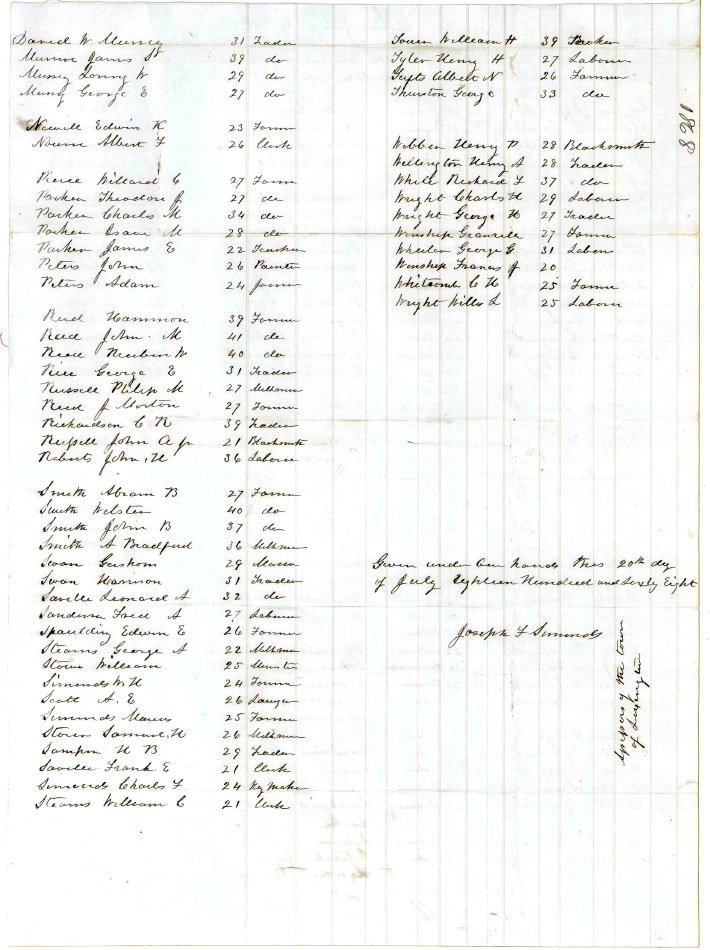 David W Muzzey 31 Trader
Munroe James S 39 do
Muzzey Loring W 29 do
Muzzey George E 27 do
Newell Edwin K 23 Farmer
Nourse Albert F 26 Clerk
Pierce Willard C 27 Farmer
Parker Theodore J 27 do
Parker Charles M 34 do
Parker Isaac M 28 do
Parker James E 22 Teacher
Peters John 26 Painter
Peters Adam 24 Farmer
Reed Hammon 39 Farmer
Reed John M 41 do
Reed Reuben W 40 do
Rice George E 31 Trader
Russell Philip M 27 Milkman
Reed J Morton 27 Farmer
Richardson C R 39 Trader
Russell John A jr 21 Blacksmith
Roberts John H 36 Laborer
Smith Abram B 27 Farmer
Smith Webster 40 do
Smith John B 37 do
Smith A Bradford 36 Milkman
Swan Gershom 29 Mason
Swan Harrison 31 Trader
Saville Leonard A 32 do
Fred A 27 Laborer
Spaulding Edwin E 26 Farmer
Stearns George A 22 Milkman
Stowe William 25 Minister
Simonds W. H 24 Farmer
Scott A. E 26 Lawyer
Simonds Marcus 25 Farmer
Samuel H 26 Milkman
Sampson H B 29 Trader
Saville Frank E 21 Clerk
Simonds Charles F 24 Key Maker
Stearns William C 21 Clerk
Tower William H 39 Broker
Tyler Henry H 27 Laborer
Tufts Albert N 26 Farmer
Thurston George 33 do
Webber Henry P 28 Blacksmith
Wellington Henry A 28 Trader
White Richard F 37 do
Wright Charles H 29 Laborer
Wright George H 27 Trader
Winship Granville 27 Farmer
Wheeler George G 31 Labor
Winship Francis J 20
Whitcomb C H 25 Farmer
Wright Willis L 25 Laborer
Given under our hands this 20th day
of July Eighteen Hundred and Sixty Eight
Joseph F Simonds
Assessors of the town
of Lexington
1868